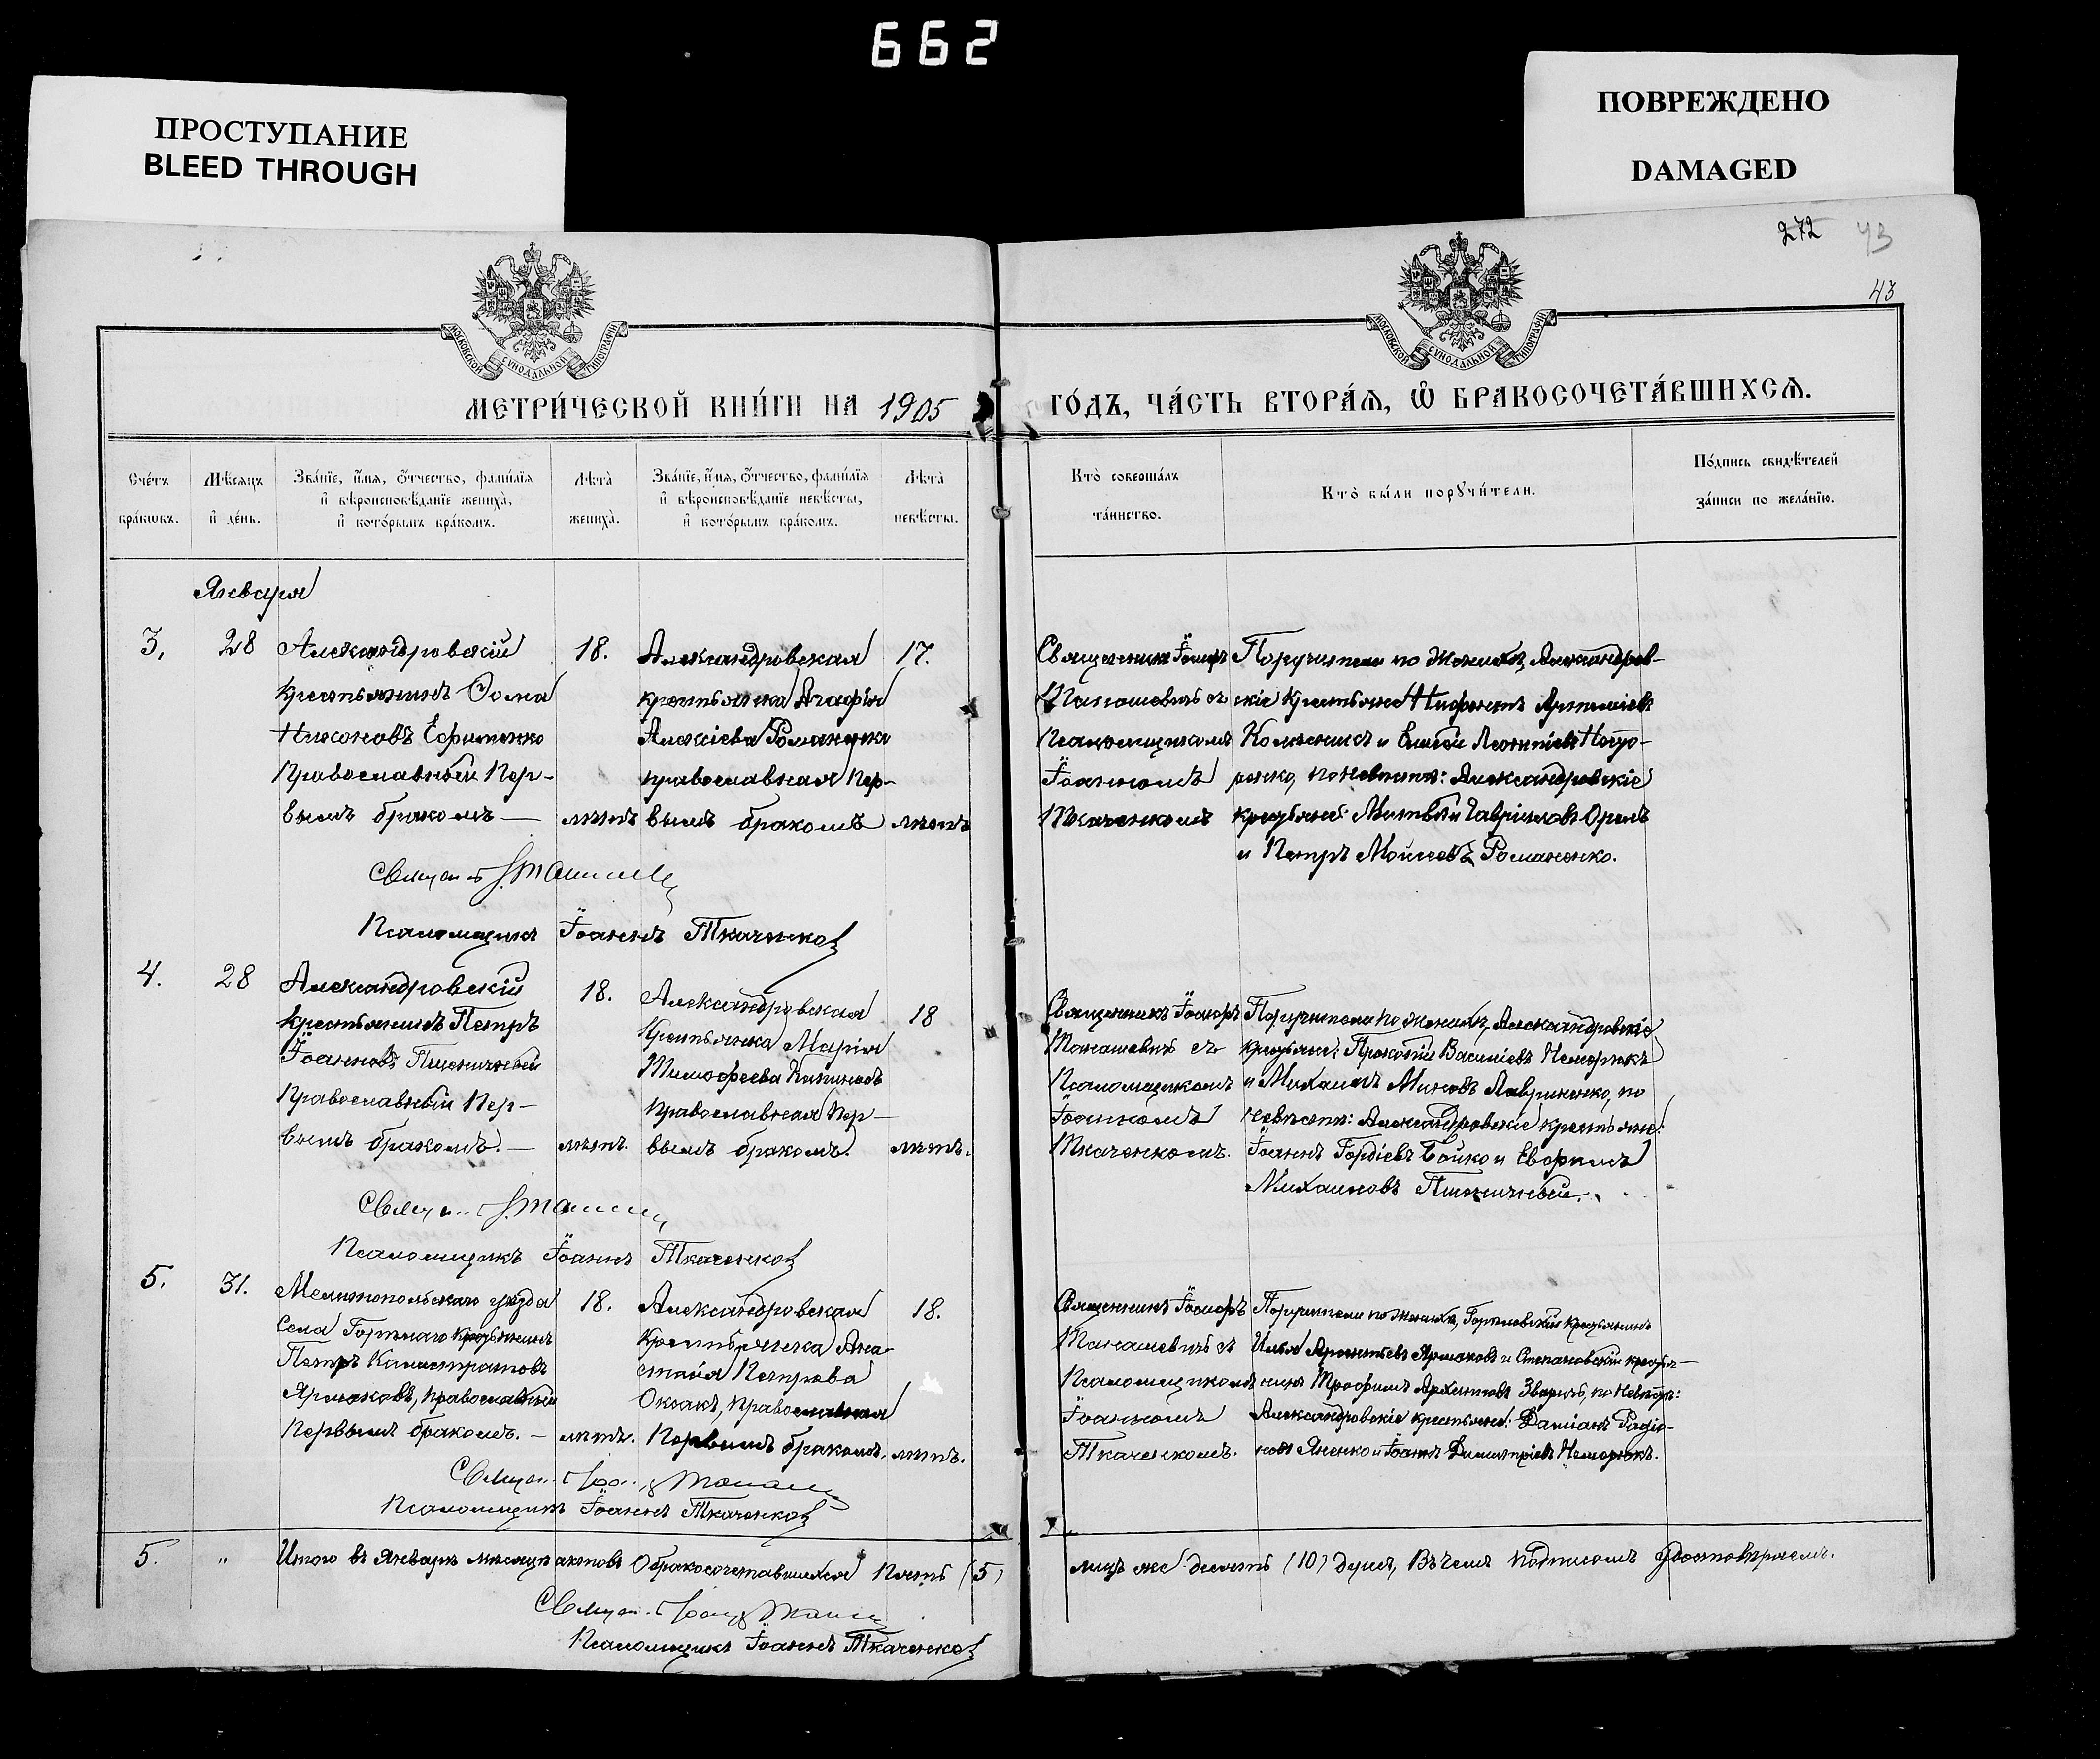 662
ПРОСТУПАНИЕ
BLEED THROUGH
ПОВРЕЖДЕНО
DAMAGED
272 43
43
МОСКОВСКОЙ СУНОДАЛЬНОЙ ТИПОГРАФІИ
МОСКОВСКОЙ СУНОДАЛЬНОЙ ТИПОГРАФІИ
МЕТРИ́ЧЕСКОЙ КНИ́ГИ НА 1905
ГО́ДЪ, ЧА́СТЬ ВТОРА́Ѧ, Ѽ БРАКОСОЧЕТА́ВШИХСѦ.
Сче́тъ
бра́кѡвъ.
Мѣ́сѧцъ
и҆ де́нь.
Зва́нїе, и҆́мѧ, ѻ҆́тчество, фами́лїѧ
и҆ вѣроисповѣ́данїе жениха̀,
и҆ кото́рымъ бра́комъ.
Лѣ́та̀
жениха̀.
Зва́нїе, и҆́мѧ, ѻ҆́тчество, фами́лїѧ
и҆ вѣроисповѣ́данїе невѣ́сты,
и҆ кото́рымъ бра́комъ.
Лѣ́та̀
невѣ́сты.
Кто̀ соверша́лъ
та́инство.
Кто̀ бы́ли порꙋчи́тели.
По́дпись свидѣ́телей
за́писи по жела́нїю.
Января
3.
28
Александровскій
крестьянинъ Ѳома
Никоновъ Ефименко
Православный Пер-
вымъ бракомъ —
18.
лѣтъ
Александровская
крестьянка Агафія
Алексіева Романенко
православная Пер-
вымъ бракомъ
17.
лѣтъ
Священникъ Іосифъ
Манашевичъ съ
Псаломщикомъ
Іоанномъ
Ткаченкомъ
Поручители по женихѣ, Александров-
скіе крестьяне Нифонтъ
и Леонтіевъ
по невѣстѣ: Александровскіе
крестьяне: Гавриловъ Орелъ
и Петръ Моисеевъ Романенко.
Псаломщикъ Іоаннъ Ткаченко
4.
28
Александровскій
крестьянинъ Петръ
Іоанновъ Пшеничный
Православный Пер-
вымъ бракомъ. —
18.
лѣтъ.
Александровская
Крестьянка Марія
Тимофеева
православная Пер-
вымъ бракомъ.
18
лѣтъ.
Священникъ Іосифъ
Манашевичъ съ
Псаломщикомъ
Іоанномъ
Ткаченкомъ.
Поручители по женихѣ, Александровскіе
крестьяне: Прокопій Василіевъ
и Михаилъ Лавриненко, по
невѣстѣ: Александровскіе крестьяне:
Іоаннъ Гордіевъ Бойко и Евфимъ
Михаиловъ Пшеничный.
Псаломщикъ Іоаннъ Ткаченко
5.
31.
Мелитопольскаго уѣзда
села Горѣлаго крестьянинъ
Петръ Калистратовъ
Ярмаковъ, православный
Первымъ бракомъ. —
18.
лѣтъ.
Александровская
Крестьянка Ана-
стасія Петрова
православная
Первымъ бракомъ.
18.
лѣтъ.
Священникъ Іосифъ
Манашевичъ съ
Псаломщикомъ
Іоанномъ
Ткаченкомъ.
Поручители по женихѣ, Горѣловскій крестьянинъ
Илья Ярмаковъ и Степановскій крестья-
нинъ Трофимъ Архиповъ по невѣстѣ:
Александровскіе крестьяне: Даміанъ Радіо-
новъ и Іоаннъ Димитріевъ
Псаломщикъ Іоаннъ Ткаченко
5.
"
Итого въ Январѣ мѣсяцѣ актовъ о бракосочетавшихся Пять (5)
лицъ же десять (10) душъ, Въ чемъ подписомъ удостовѣряемъ.
Псаломщикъ Іоаннъ Ткаченко